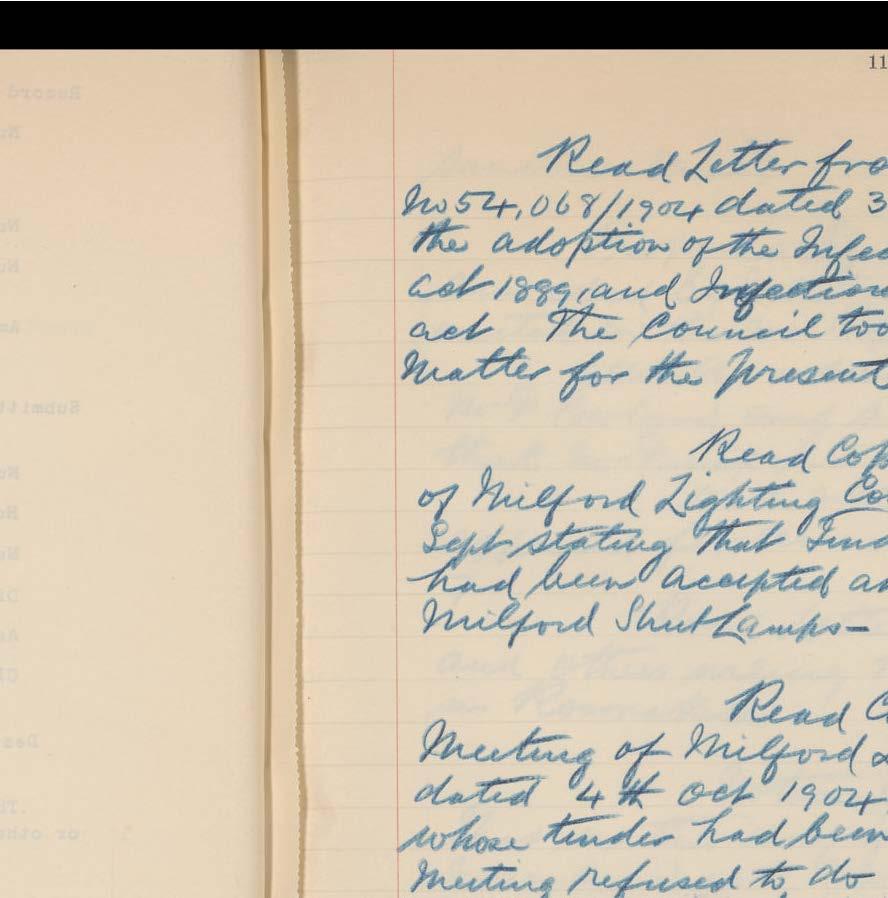 11
Read Letter fro
No 54,068/1904 dated 3
the adoption of the Infec
act 1889, and Infectiou
act The Council too
Matter for the present
Read Cop
of Milford Lighting Co
Sept stating that Tend
had been accepted an
Milford Street Lamps-
Read C
Meeting of Milford L
dated 4th Oct 1904.
whose tender had been
Meeting refused to do